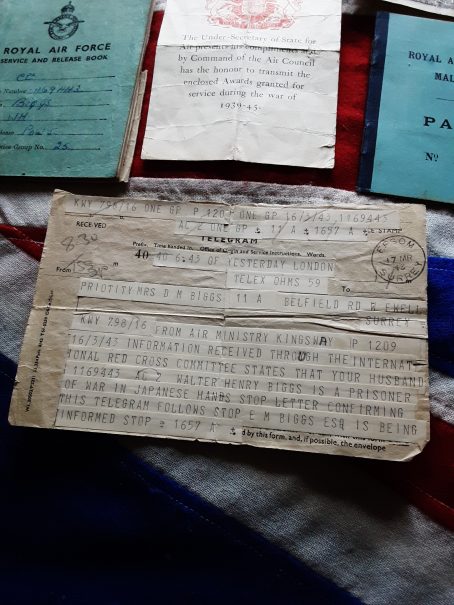 ROYAL AIR FORCE
SERVICE AND RELEASE BOOK
Number 1169443
Biggs
W.H
Service Group No. 25
The Under-Secretary of State for
Air presents his compliments and
by Command of the Air Council
has the honour to transmit the
enclosed Awards granted for
service during the war of
1939-45.
ROYAL A
MAL
PA
No
KWY 798/16 ONE GP P 1209 ONE GP 16/3/43 1169443
AC 2 ONE GP 11 A 1657 A
RECEIVED
TELEGRAM
Prefix. Time handed in. Office of Origin and Service Instructions. Words.
8.30
From
40 40 6.45 OF YESTERDAY LONDON
TELEX OHMS 59
EPSOM
17 MR
43
SURREY
PRIOTITY MRS D M BIGGS 11 A BELFIELD RD W EWELL
SURREY
KWY 798/16 FROM AIR MINISTRY KINGSWAY P 1209
16/3/43 INFORMATION RECEIVED THROUGH THE INTERNAT-
IONAL RED CROSS COMMITTEE STATES THAT YOUR HUSBAND
1169443 2 WALTER HENRY BIGGS IS A PRISONER
OF WAR IN JAPANESE HANDS STOP LETTER CONFIRMING
THIS TELEGRAM FOLLOWS STOP E M BIGGS ESQ IS BEING
INFORMED STOP 1657 A
by this form, and, if possible, the envelope